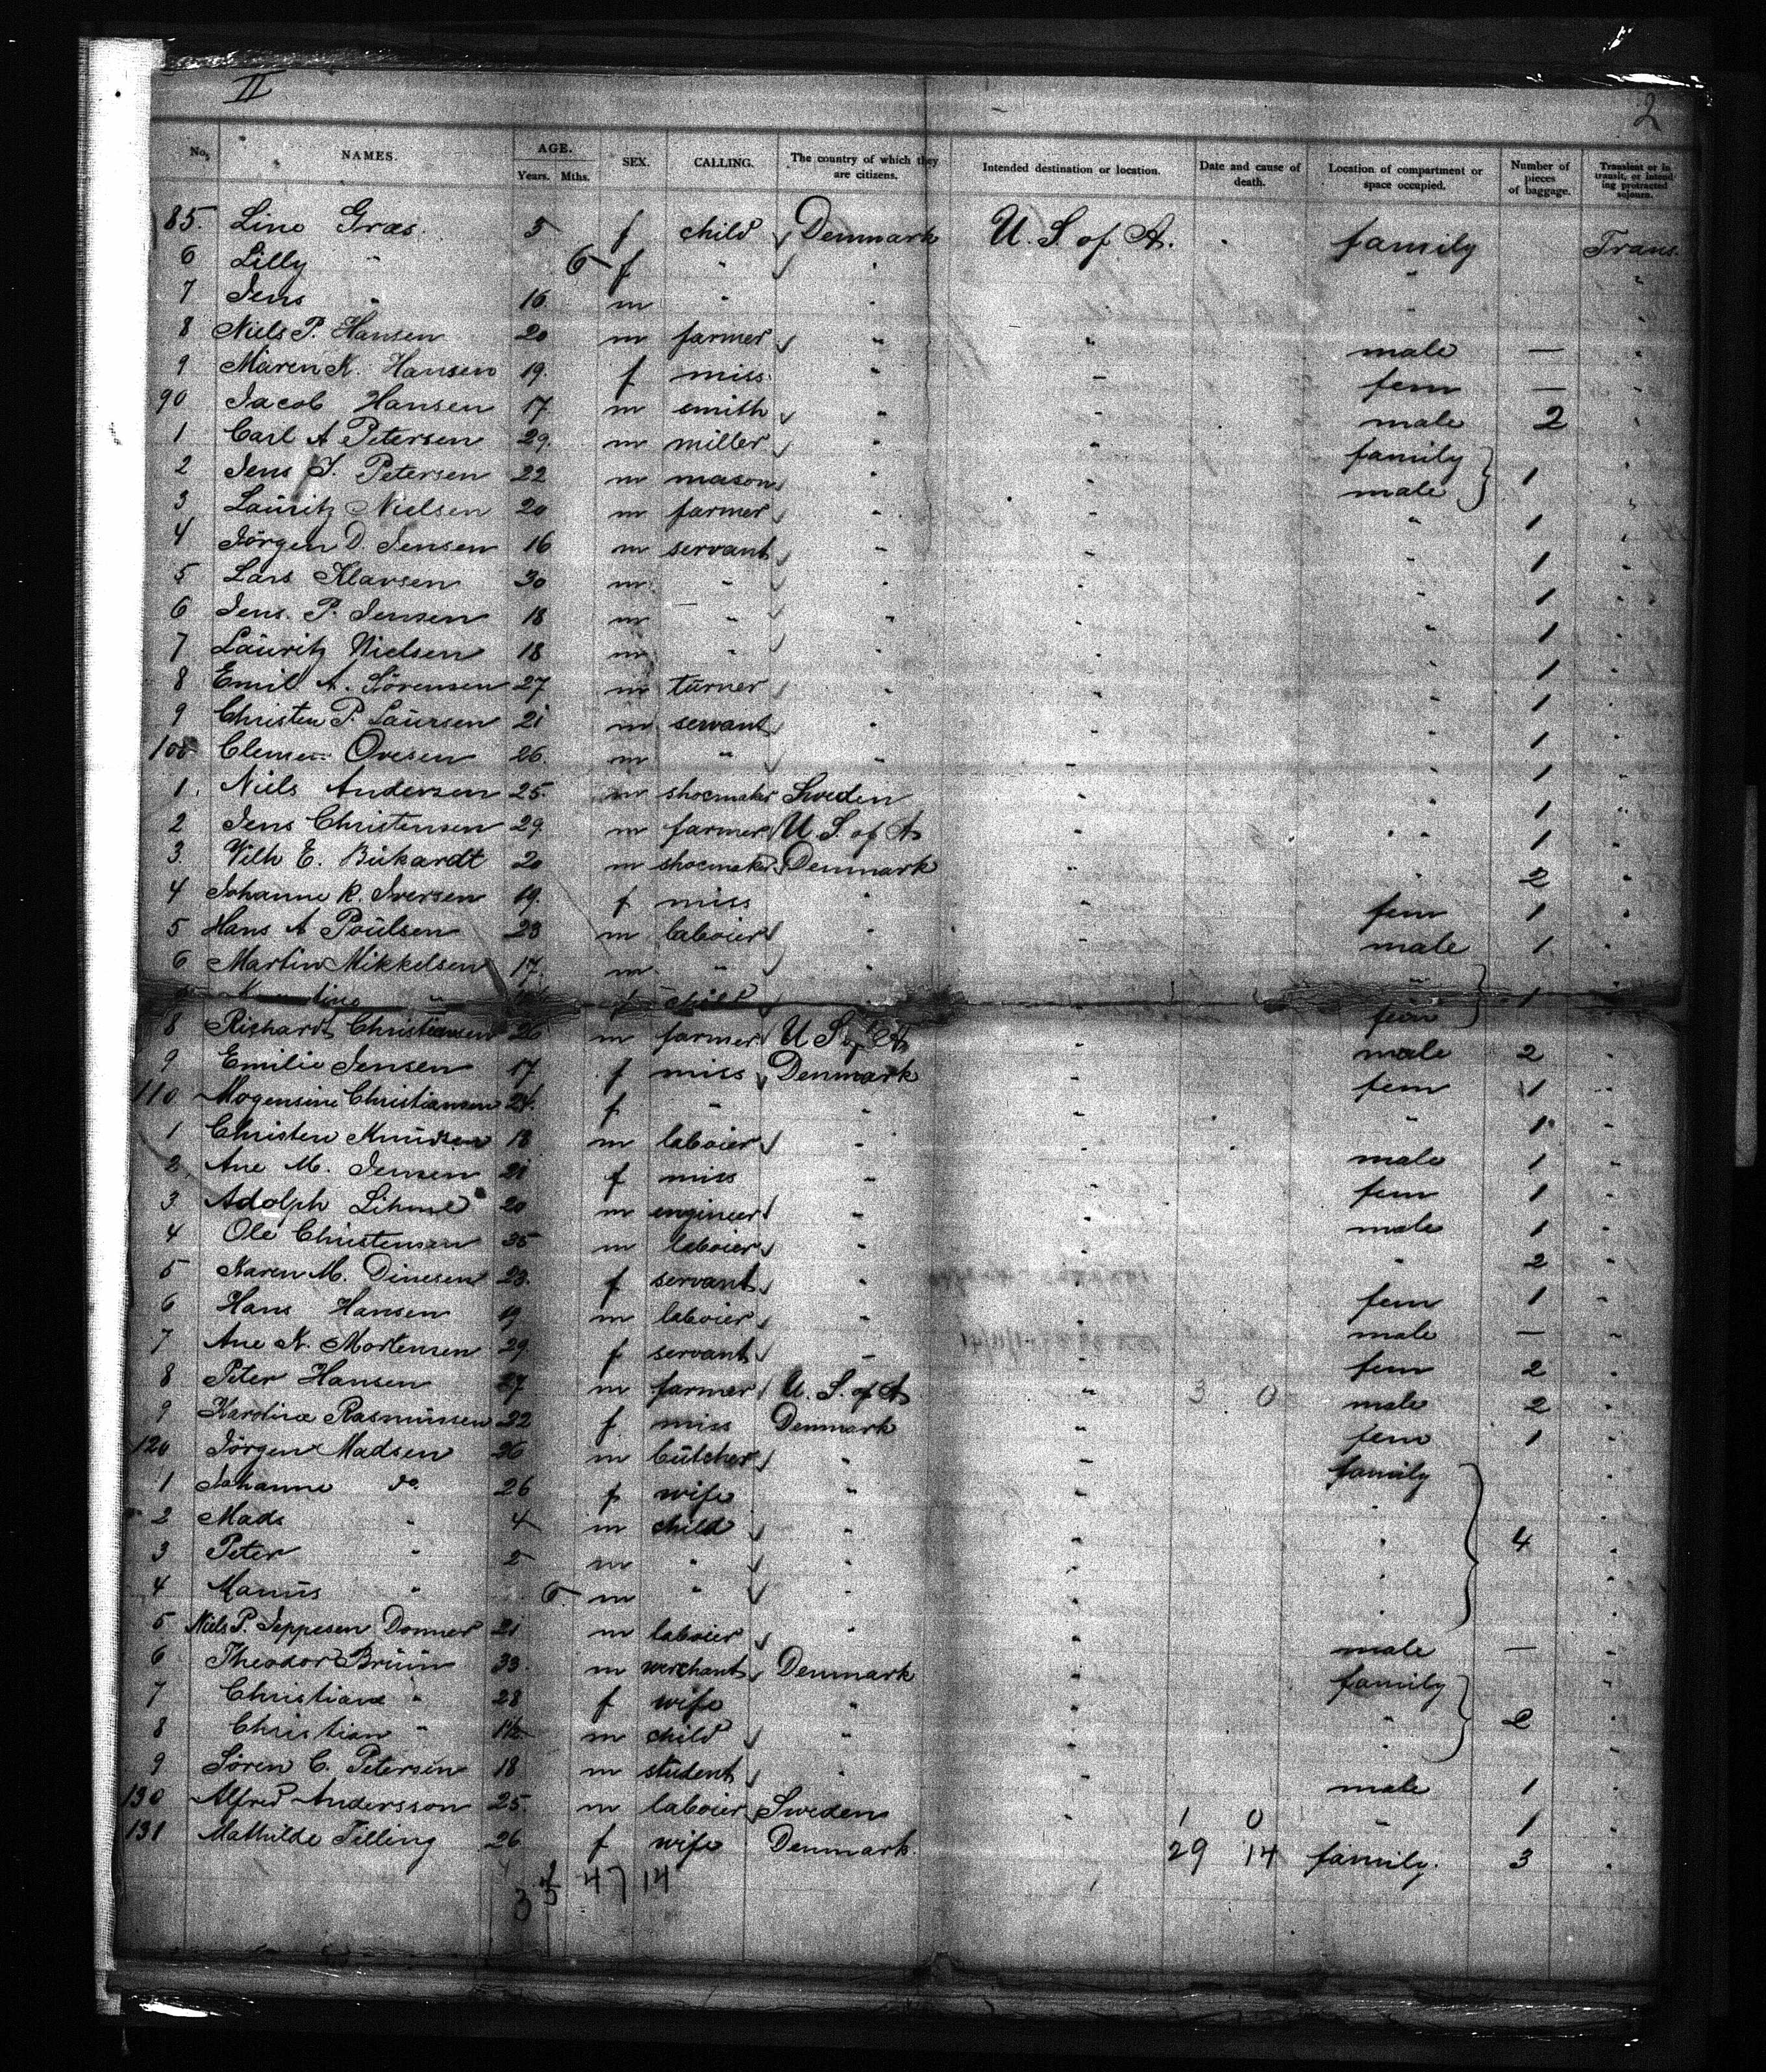 II
2
No. NAMES. AGE. Years. Mths. SEX. CALLING. The country of which they are citizens. Intended destination or location. Date and cause of death. Location of compartment or space occupied. Number of pieces of baggage. Transient or in transit, or intending protracted sojourn.
85. Line Græs. 5 f child Denmark U. S. of A. family Trans.
6 Lilly " 6 f " " " "
7 Jens " 16 m " " " "
8 Niels P. Hansen 20 m farmer " " male — "
9 Maren K. Hansen 19. f miss " " fem — "
90 Jacob Hansen 17 m smith " " male 2 "
1 Carl A Petersen 29. m miller " " family 1 "
2 Jens J. Petersen 22 m mason " " male "
3 Lauritz Nielsen 20 m farmer " " " 1 "
4 Jörgen D. Jensen 16 m servant " " " 1 "
5 Lars Klausen 30 m " " " " 1 "
6 Jens. P. Jensen 18 m " " " " 1 "
7 Lauritz Nielsen 18 m " " " " 1 "
8 Emil A. Sörensen 27 m turner " " " 1 "
9 Christen P. Laursen 21 m servant " " " 1 "
100 Clemen Ovesen 26. m " " " " 1 "
1. Niels Andersen 25. m shoemaker Sweden " " 1 "
2 Jens Christensen 29. m farmer U. S. of A " " 1 "
3. Vilh E. Bukardt 20 m shoemaker Denmark " " 2 "
4 Johanne K. Iversen 19. f miss " " fem 1 "
5 Hans A Poulsen 23 m laboier " " male 1 "
6 Martin Mikkelsen 17. m " " " " 1 "
f child " fem
8 Richardt Christiansen 26 m farmer U S of A " male 2 "
9 Emilie Jensen 17 f miss Denmark " fem 1 "
110 Mogensine Christiansen 24. f " " " " 1 "
1 Christen Knudsen 18 m laboier " " male 1 "
2 Ane M. Jensen 21 f miss " " fem 1 "
3 Adolph Lihme 20 m engineer " " male 1 "
4 Ole Christensen 35 m laboier " " " 2 "
5 Karen M. Dinesen 23. f servant " " fem 1 "
6 Hans Hansen 19 m laboier " " male — "
7 Ane K. Mortensen 29 f servant " " fem 2 "
8 Peter Hansen 27 m farmer U. S. of A " 3 0 male 2 "
9 Karoline Rasmussen 22 f miss Denmark " fem 1 "
120 Jörgen Madsen 26 m butcher " " family "
1 Johanne do 26 f wife " " " "
2 Mads " 4 m child " " " 4 "
3 Peter " 2 m " " " " "
4 Marius " 6 m " " " " "
5 Niels P. Jeppesen Donner 21 m laboier " " male — "
6 Theodor Bruun 33. m merchant Denmark " family "
7 Christiane " 28 f wife " " " 2 "
8 Christian " 1½ m child " " " "
9 Sören C. Petersen 18 m student " " male 1 "
130 Alfred Andersson 25. m laboier Sweden " 1 0 " 1 "
131 Mathilde Tilling 26 f wife Denmark. 29 14 family. 3 "
47 14